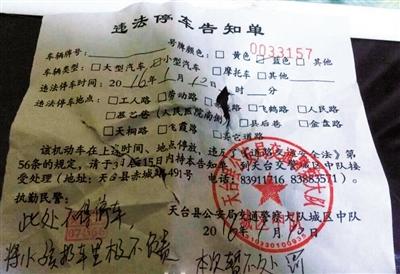 违法停车告知单
0033157
车辆牌号: 号牌颜色: □黄色 □蓝色 □其他
车辆类型: □大型汽车 □小型汽车 □摩托车 □其他
违法停车时间: 2016年1月12日 时 分
违法停车地点: □工人路 □劳动路 □飞鹤路 □人民路
□(人民医院南侧) □县后巷 □金盘路
□天桐路 □飞霞路 □其它道路
该机动车在上述时间、地点停放，违反《道路交通安全法》第
56条的规定，请于3日后15日内持本告知单，到天台交警城区中队接
受处理（地址：天台县赤城路491号 电话：83911716 83883571）。
执勤民警：
天台县公安局交通警察大队城区中队
此处不得停车，
将小孩扔车里极不负责
本次暂不处罚